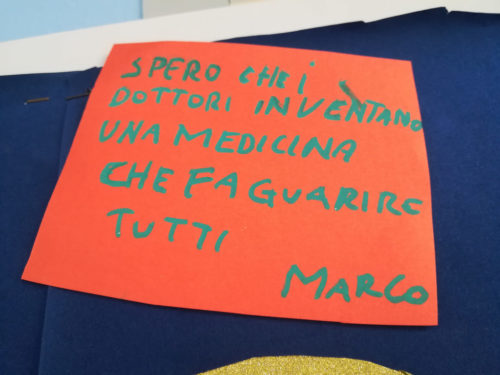 SPERO CHE i
DOTTORI INVENTANO
UNA MEDICINA
CHE FA GUARIRE
TUTTI
MARCO